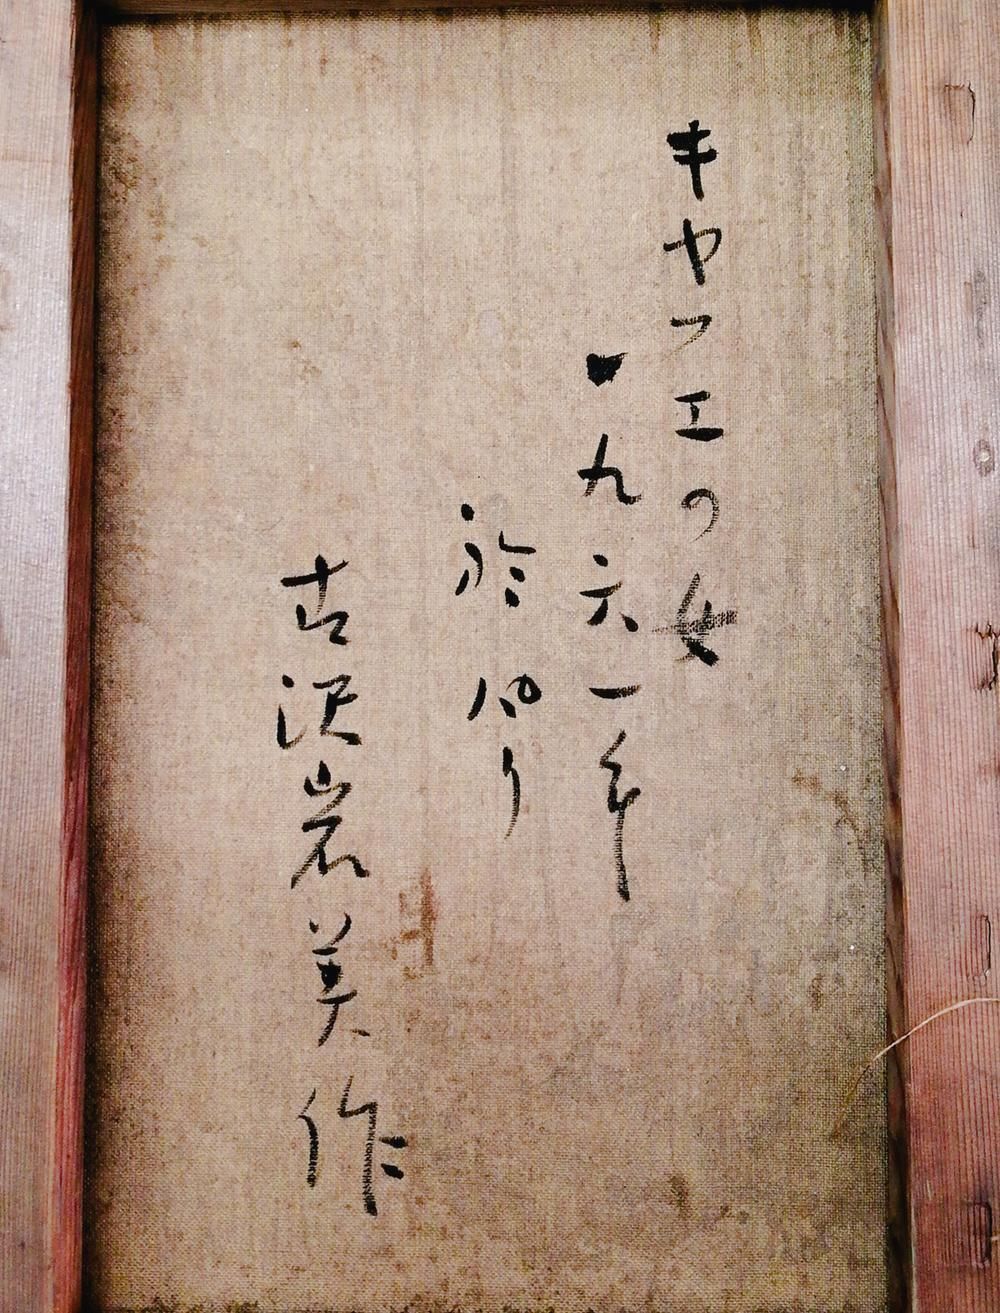 キャフエの女
一九六一年
於パリ
古沢岩美作